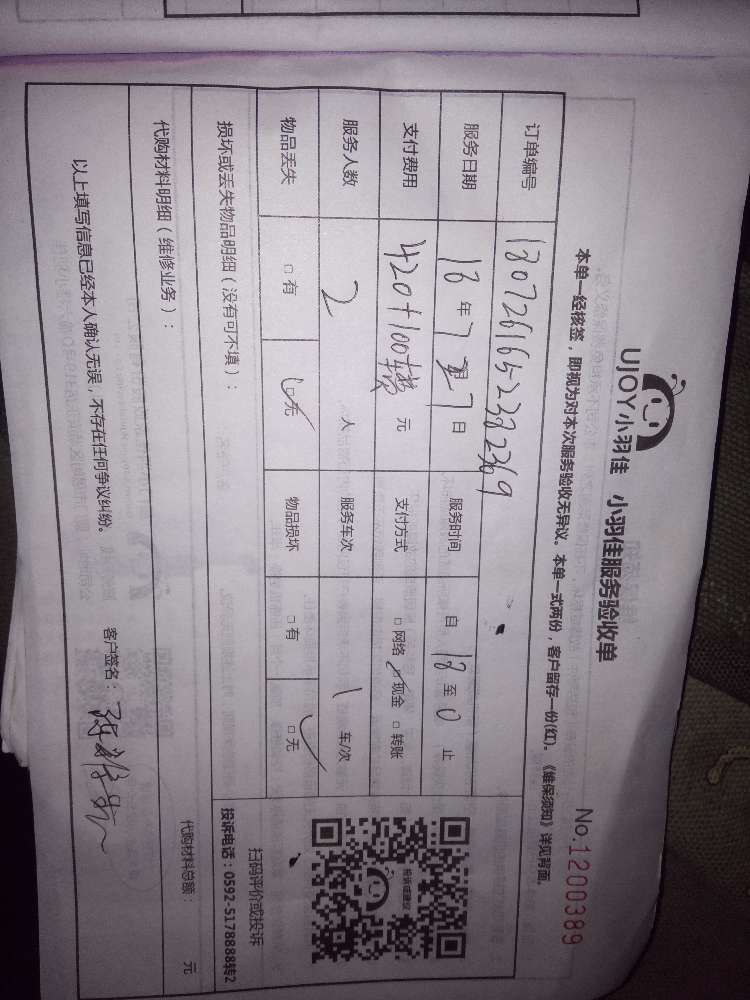 UJOY小羽佳 小羽佳服务验收单
No.1200389
本单一经核签，即视为对本次服务验收无异议。本单一式两份，客户留存一份(红)。《维保须知》详见背面。
订单编号 1807261652382369
服务日期 18年7月27日 服务时间 自18至0止
支付费用 420+100楼元 支付方式 □网络 ☑现金 □转账
服务人数 2人 服务车次 1车/次
物品丢失 □有 ☑无 物品损坏 □有 ☑无
投诉或建议
扫码评价或投诉
投诉电话：0592-5178888转2
损坏或丢失物品明细（没有可不填）：
代购材料明细（维修业务）： 代购材料总额： 元
以上填写信息已经本人确认无误，不存在任何争议纠纷。 客户签名：